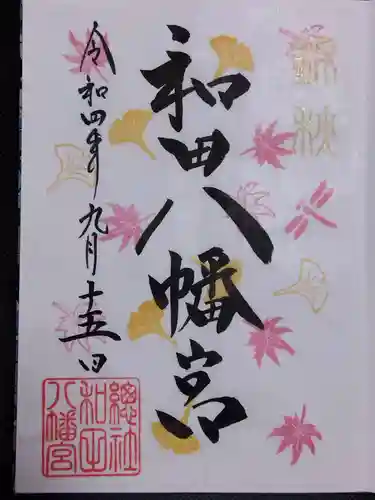 錦秋
和田八幡宮
令和四年九月十五日
總社
和田
八幡宮